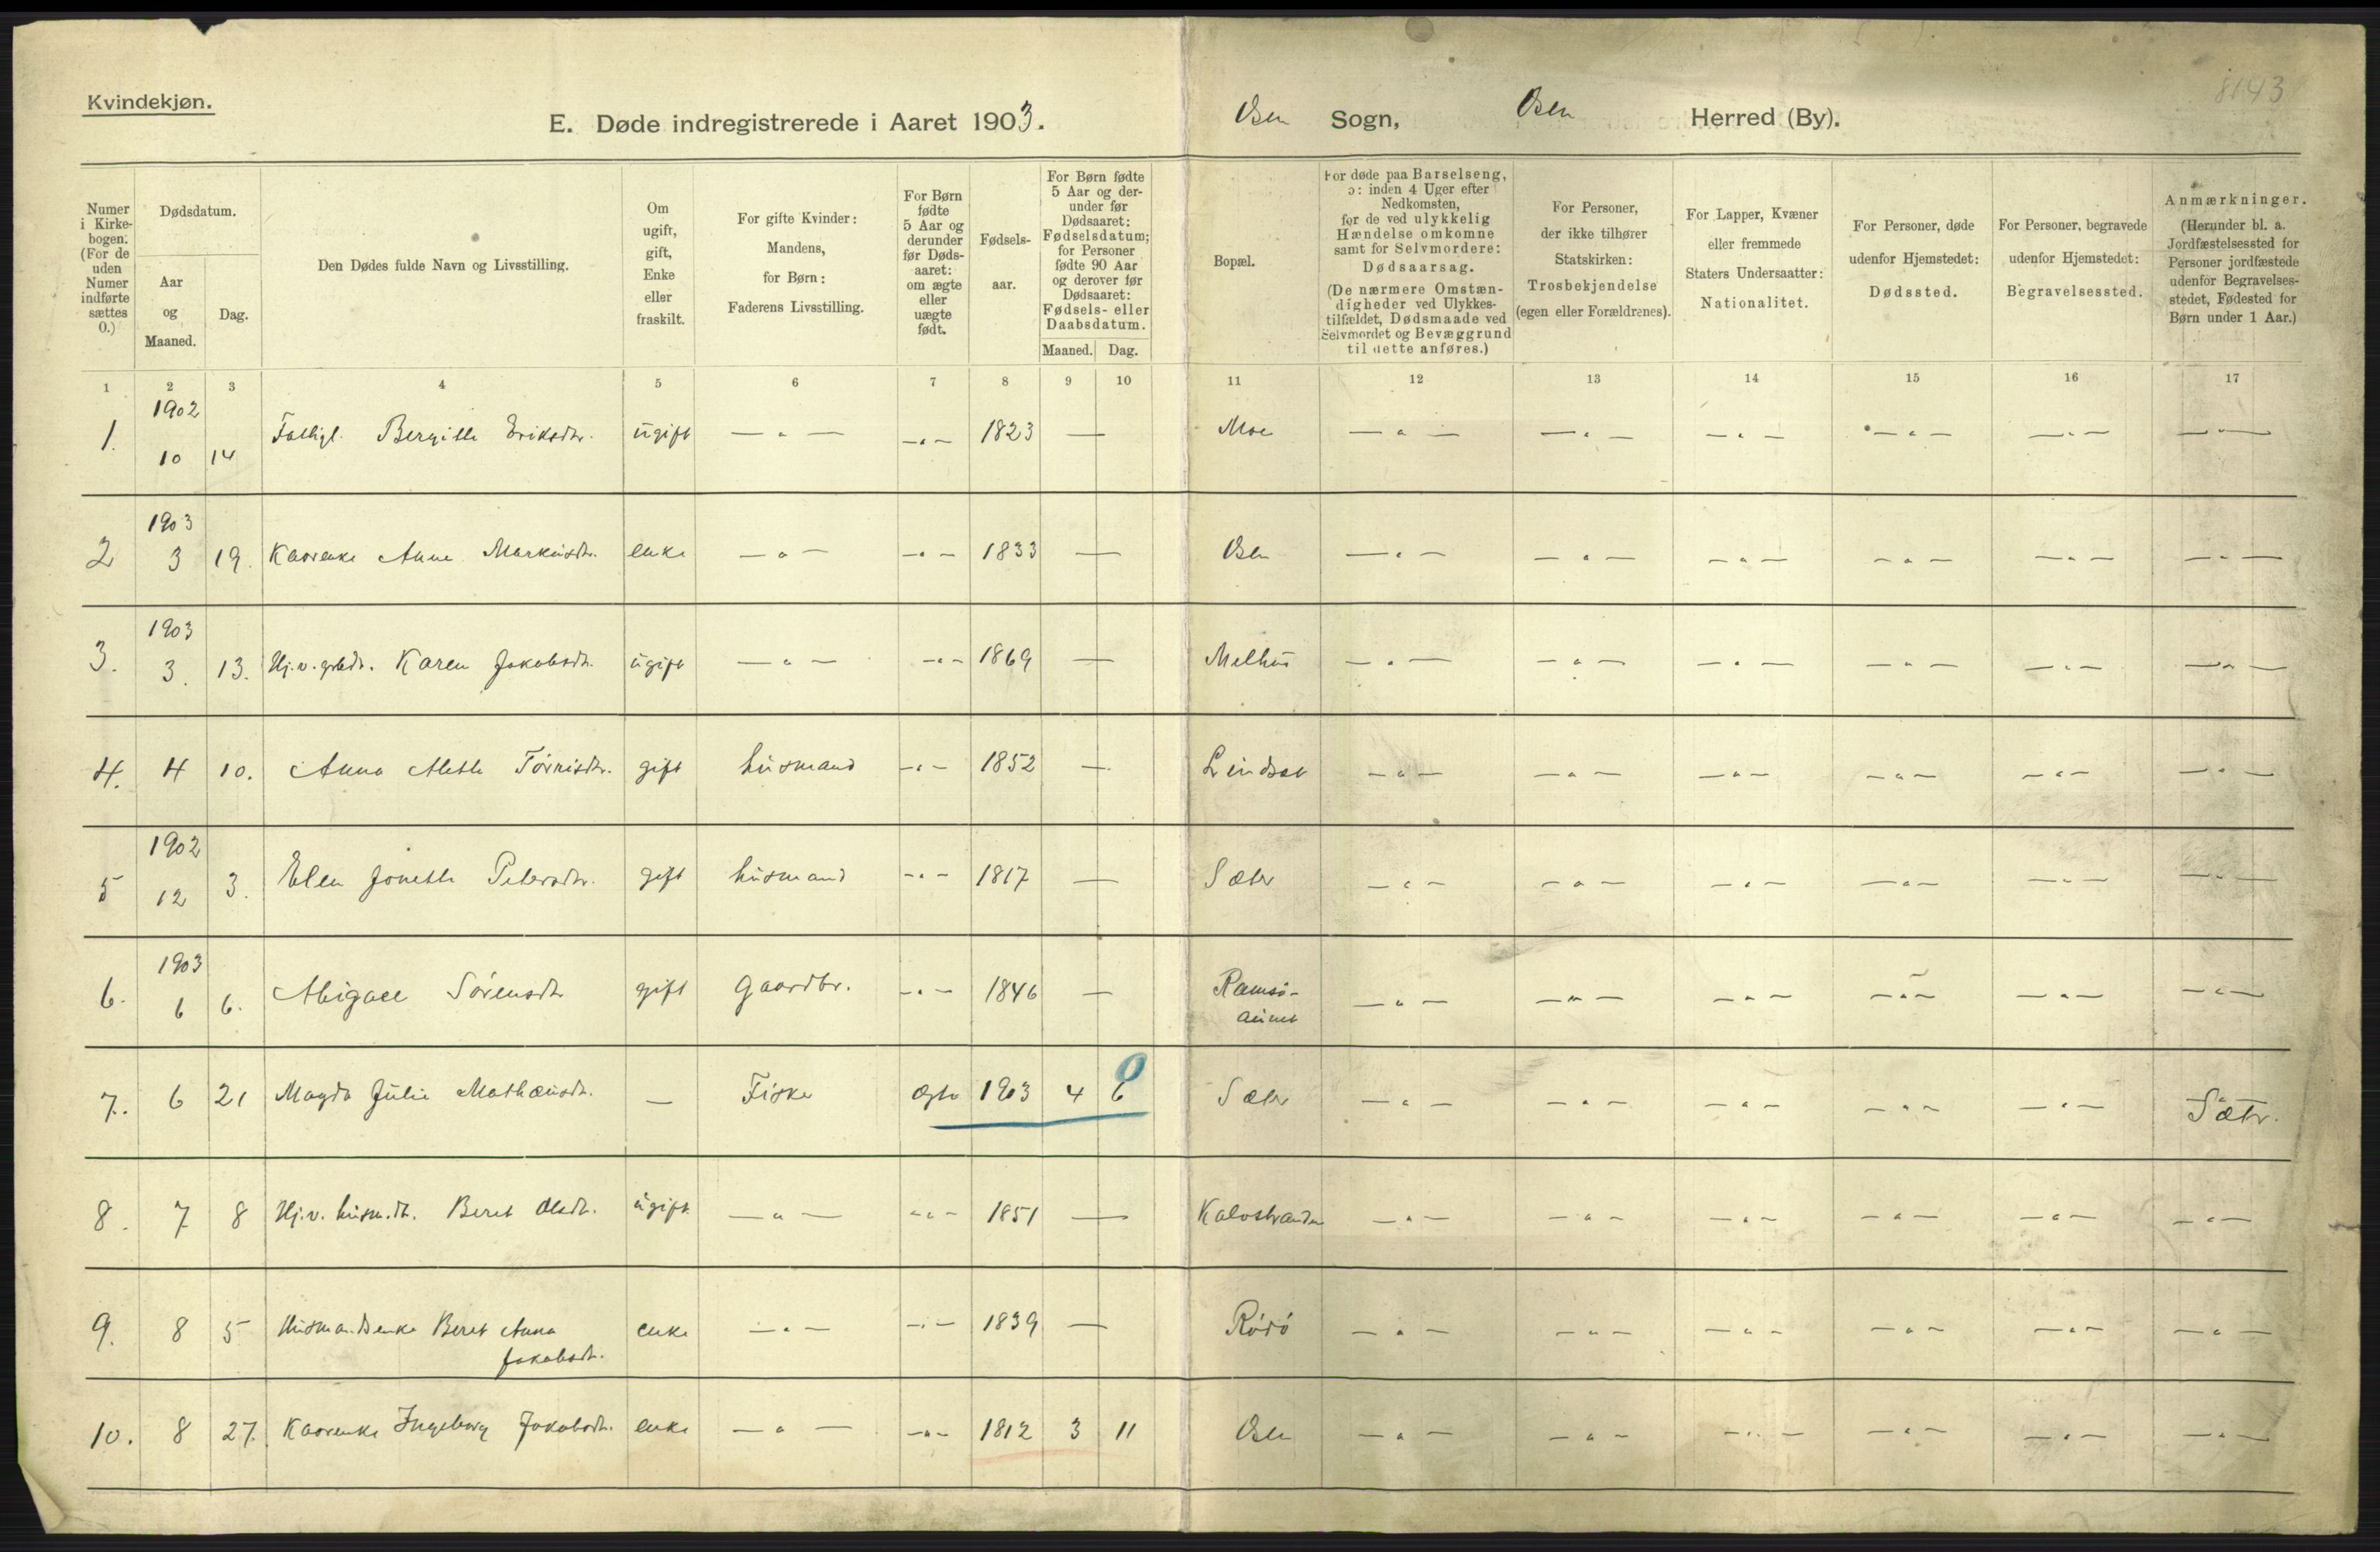 Kvindekjøn.
E. Døde indregistrerede i Aaret 1903.
Osen Sogn, Osen Herred (By).
8143
Numer i Kirkebogen. (For de uden Numer indførte sættes 0.)
Dødsdatum.
Aar og Maaned.
Dag.
Den Dødes fulde Navn og Livsstilling.
Om ugift, gift, Enke eller fraskilt.
For gifte Kvinder: Mandens, for Børn: Faderens Livsstilling.
For Børn fødte 5 Aar og derunder før Dødsaaret: om ægte eller uægte født.
Fødselsaar.
For Børn fødte 5 Aar og derunder før Dødsaaret: Fødselsdatum; for Personer fødte 90 Aar og derover før Dødsaaret: Fødsels- eller Daabsdatum.
Maaned. Dag.
Bopæl.
For døde paa Barselseng, ɔ: inden 4 Uger efter Nedkomsten, for de ved ulykkelig Hændelse omkomne samt for Selvmordere: Dødsaarsag. (De nærmere Omstændigheder ved Ulykkestilfældet, Dødsmaade ved Selvmordet og Bevæggrund til dette anføres.)
For Personer, der ikke tilhører Statskirken: Trosbekjendelse (egen eller Forældrenes).
For Lapper, Kvæner eller fremmede Staters Undersaatter: Nationalitet.
For Personer, døde udenfor Hjemstedet: Dødssted.
For Personer, begravede udenfor Hjemstedet: Begravelsessted.
Anmærkninger. (Herunder bl. a. Jordfæstelsessted for Personer jordfæstede udenfor Begravelsesstedet, Fødested for Børn under 1 Aar.)
1 2 3 4 5 6 7 8 9 10 11 12 13 14 15 16 17
1. 1902 10 14 Fattigl. Bergitte Eriksdtr. ugift — " — — " — 1823 — Moe — " — — " — — " — — " — — " — — " —
2 1903 3 19. Kaarenke Anne Markusdtr. enke — " — — " — 1833 — Osen — " — — " — — " — — " — — " — — " —
3. 1903 3. 13. Hj.v. grbdr. Karen Jakobsdtr. ugift — " — — " — 1869 — Melhus — " — — " — — " — — " — — " — — " —
4. 4 10. Anna Mette Tørrisdtr. gift husmand — " — 1852 — Lindset — " — — " — — " — — " — — " — — " —
5 1902 12 3. Elen Jonette Petersdtr. gift husmand — " — 1817 — Sæter — " — — " — — " — — " — — " — — " —
6. 1903 6 6. Abigael Sörensdtr gift Gaardbr. — " — 1846 — Ramsö-
aunet — " — — " — — " — — " — — " — — " —
7. 6 21 Magda Julie Mathæusdtr. — Fisker ægte 1903 4 6 0 Sæter — " — — " — — " — — " — — " — — " — Sætr.
8. 7 8 Hj.v. husm.dtr. Beret Olsdtr. ugift — " — — " — 1851 — Kalvstranden — " — — " — — " — — " — — " — — " —
9. 8 5 Husmandsenke Beret Anna
Jakobsdtr. enke — " — — " — 1839 — Röiö — " — — " — — " — — " — — " — — " —
10. 8 27. Kaarenke Ingeborg Jakobsdtr. enke — " — — " — 1812 3 11 Osen — " — — " — — " — — " — — " — — " —